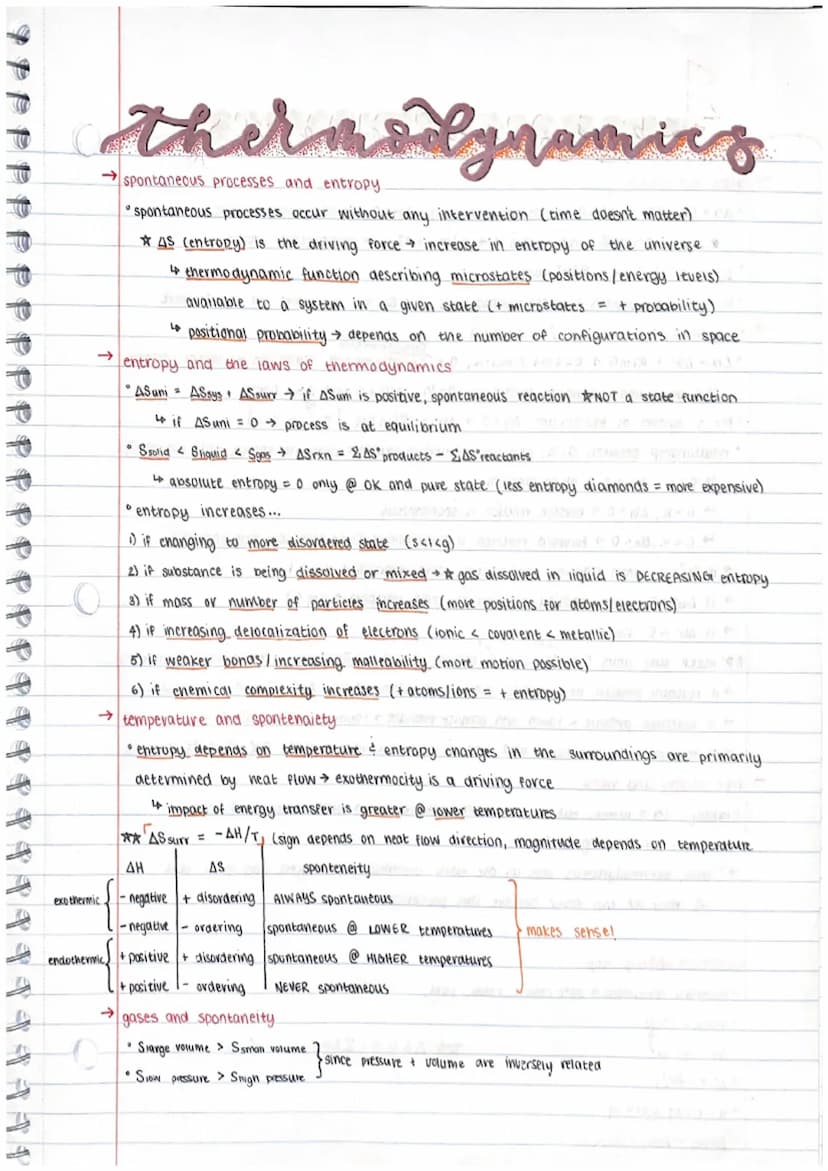 thermodynamics
→ spontaneous processes and entropy
° spontaneous processes occur without any intervention (time doesn't matter)
★ ΔS (entropy) is the driving force → increase in entropy of the universe
↳ thermodynamic function describing microstates (positions/energy levels)
available to a system in a given state (+ microstates = + probability)
↳ positional probability → depends on the number of configurations in space
→ entropy and the laws of thermodynamics
° ΔSuni = ΔSsys + ΔSsurr → if ΔSuni is positive, spontaneous reaction ★NOT a state function
↳ if ΔSuni = 0 → process is at equilibrium
° Ssolid < Sliquid < Sgas → ΔSrxn = ΣΔS°products - ΣΔS°reactants
↳ absolute entropy = 0 only @ 0K and pure state (less entropy diamonds = more expensive)
° entropy increases...
1) if changing to more disordered state (s<l<g)
2) if substance is being dissolved or mixed → ★ gas dissolved in liquid is DECREASING entropy
3) if mass or number of particles increases (more positions for atoms/electrons)
4) if increasing delocalization of electrons (ionic < covalent < metallic)
5) if weaker bonds/increasing malleability (more motion possible)
6) if chemical complexity increases (+ atoms/ions = + entropy)
→ temperature and spontenaiety
° entropy depends on temperature & entropy changes in the surroundings are primarily
determined by heat flow → exothermocity is a driving force
↳ impact of energy transfer is greater @ lower temperatures
★★ ΔSsurr = -ΔH/T (sign depends on heat flow direction, magnitude depends on temperature
ΔH ΔS sponteneity
exothermic - negative + disordering AlWAYS spontaneous
- negative - ordering spontaneous @ LOWER temperatures makes sense!
endothermic + positive + disordering spontaneous @ HIGHER temperatures
+ positive - ordering NEVER spontaneous
→ gases and spontaneity
° Slarge volume > Ssmall volume
since pressure + volume are inversely related
° Slow pressure > Shigh pressure